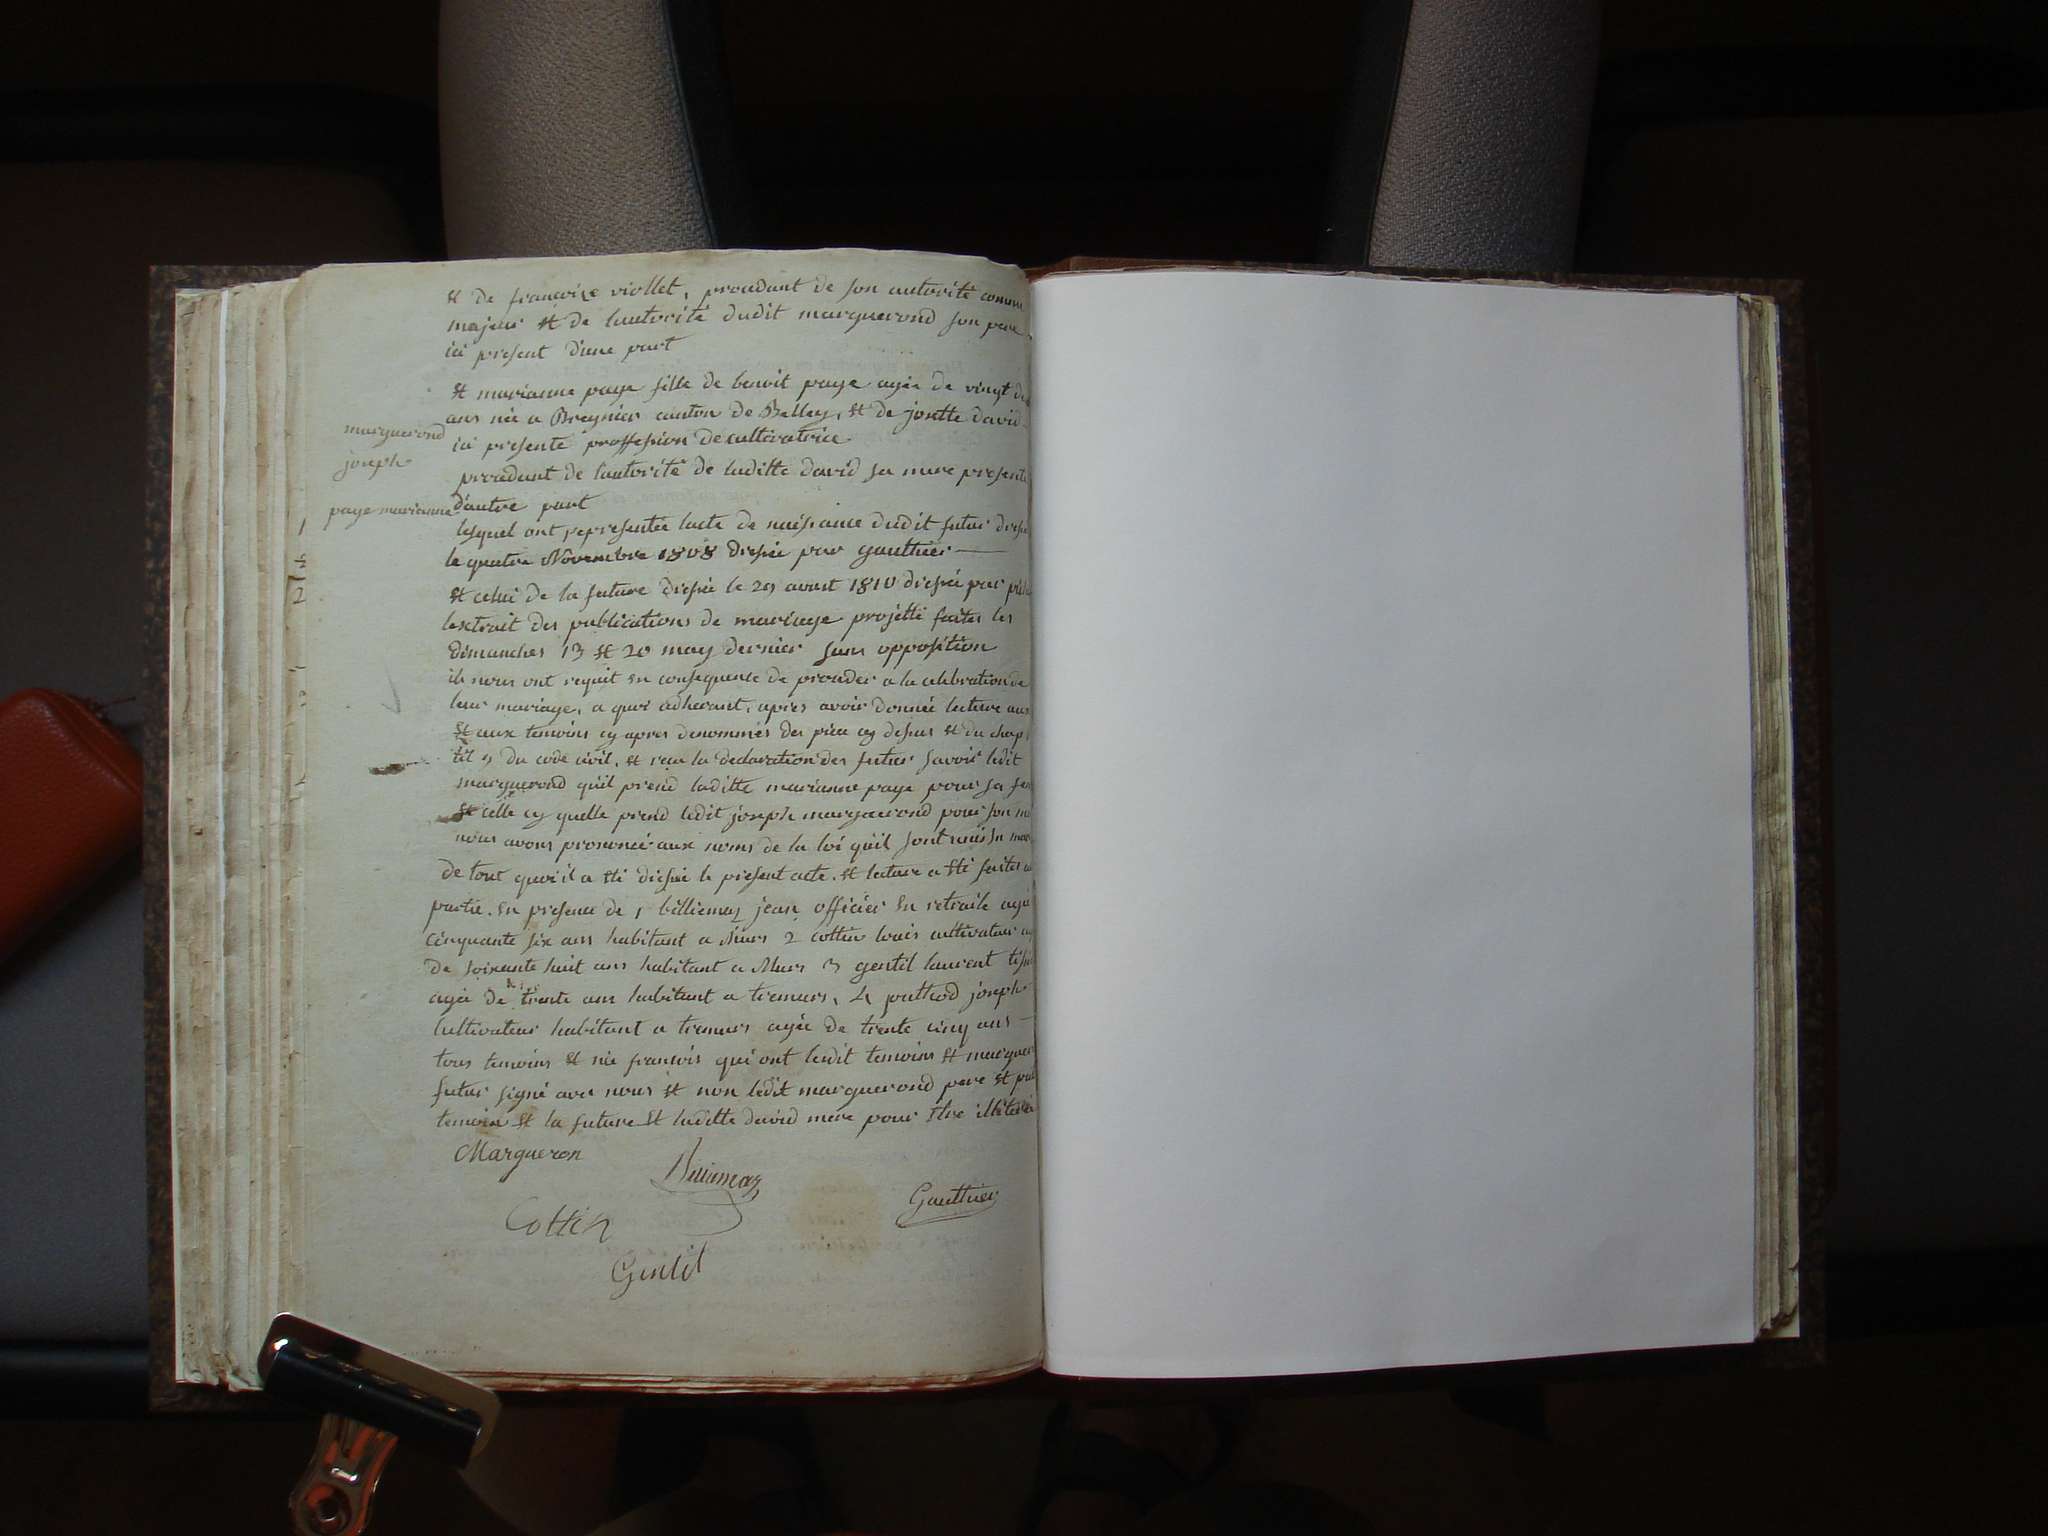 et de francoise viollet, procedant de son autorité comme
majeur et de lautorité dudit marguerond son pere
ici present d'une part
et marianne paye fille de benoit paye agée de vingt
ans née a Breynier canton de Belley, et de josette david
ici presente proffession de cultivatrice
procedant de lautorité de laditte david sa mere presente
d'autre part
marguerond
joseph
paye marianne
lesquel ont representée lacte de naissance dudit futur
le quatre Novembre 1808 dressée par gauthier
et celui de la future dressée le 29 aoust 1810 dressée par
lextrait des publications de mariage projetté faites les
dimanches 13 et 20 may dernier sans opposition
ils nous ont requit en consequence de proceder a la celebration de
leur mariage, a quoi adherant, apres avoir donnée lecture aux
et aux temoins cy apres denommés des piece cy dessus et du chap
tit 5 du code civil, et reçu la declaration des futur savoir ledit
marguerond qu'il prend laditte marianne paye pour sa
et celle cy quelle prend ledit joseph marguerond pour son
nous avons prononcé aux noms de la loi qu'il sont unis en
de tout quoi il a eté dressée le present acte. et lecture a eté faites
partie. en presence de 1 billiemaz jean officier en retraite agé
cinquante six ans habitant a Murs 2 cottin louis cultivateur
de soixante huit ans habitant a Murs 3 gentil laurent
agée de trente ans habitant a tremurs, 4 puthod joseph
cultivateur habitant a tremurs agée de trente cinq ans
tous temoins et née francois qui ont ledit temoins et
futur signé avec nous et non ledit marguerond pere et
temoin et la future et laditte david mere pour etre
Margueron
Billiemaz
Gauthier
Cottin
Gentil